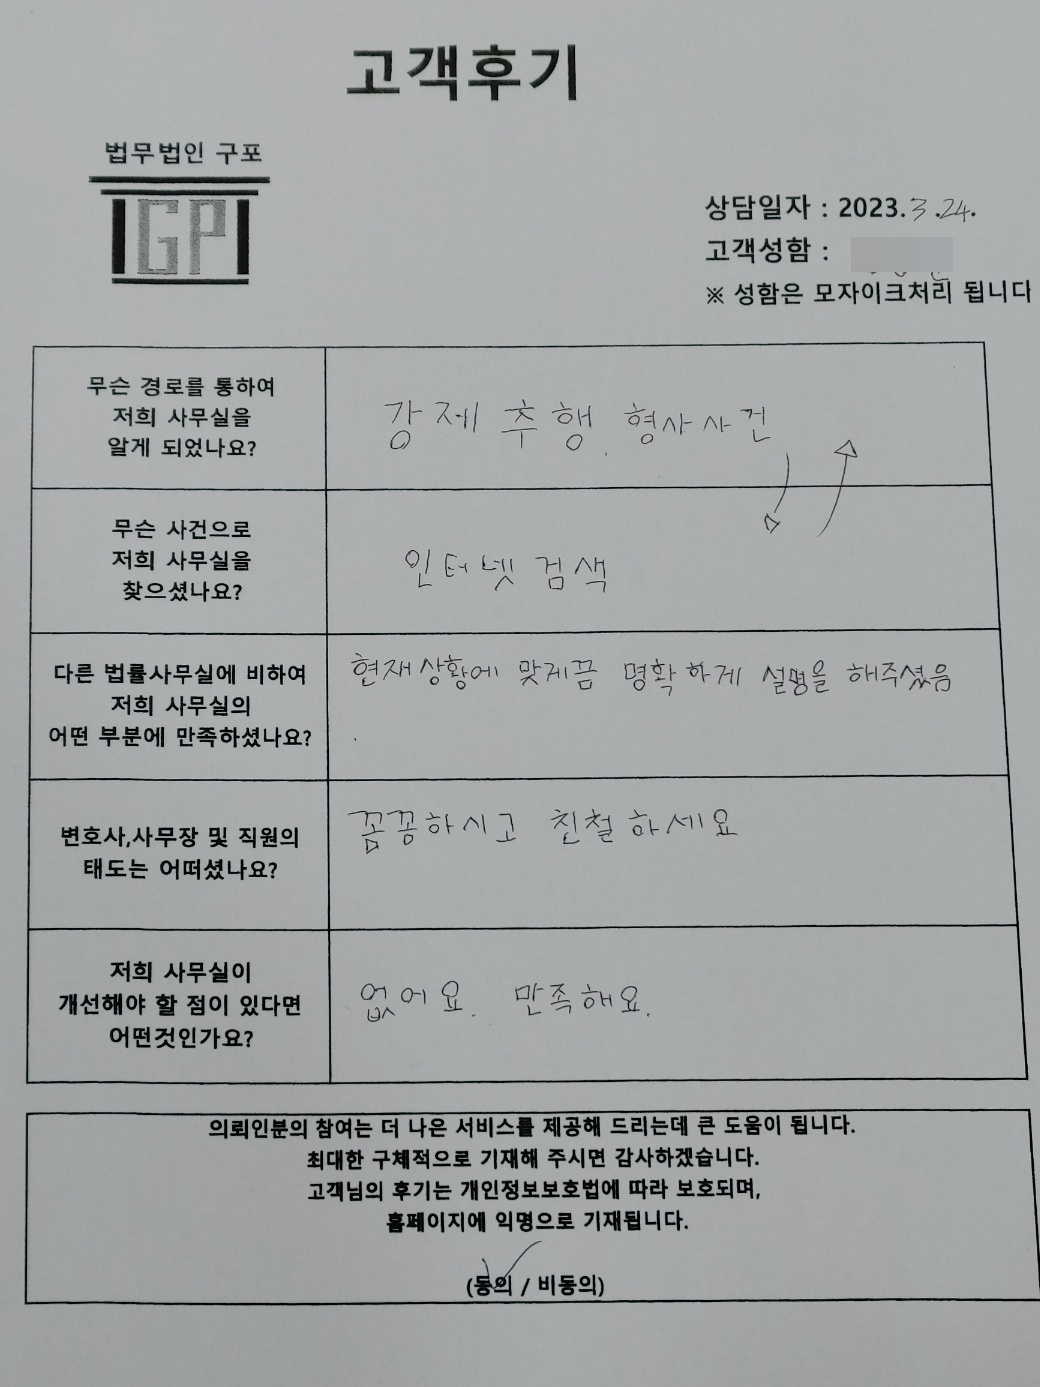 고객후기
법무법인 구포
GP
상담일자 : 2023.3.24.
고객성함 :
※ 성함은 모자이크처리 됩니다
무슨 경로를 통하여
저희 사무실을
알게 되었나요?
강제추행. 형사사건
무슨 사건으로
저희 사무실을
찾으셨나요?
인터넷 검색
다른 법률사무실에 비하여
저희 사무실의
어떤 부분에 만족하셨나요?
현재상황에 맞게끔 명확하게 설명을 해주셨음
.
변호사,사무장 및 직원의
태도는 어떠셨나요?
꼼꼼하시고 친철하세요
저희 사무실이
개선해야 할 점이 있다면
어떤것인가요?
없어요. 만족해요.
의뢰인분의 참여는 더 나은 서비스를 제공해 드리는데 큰 도움이 됩니다.
최대한 구체적으로 기재해 주시면 감사하겠습니다.
고객님의 후기는 개인정보보호법에 따라 보호되며,
홈페이지에 익명으로 기재됩니다.
(동의 / 비동의)